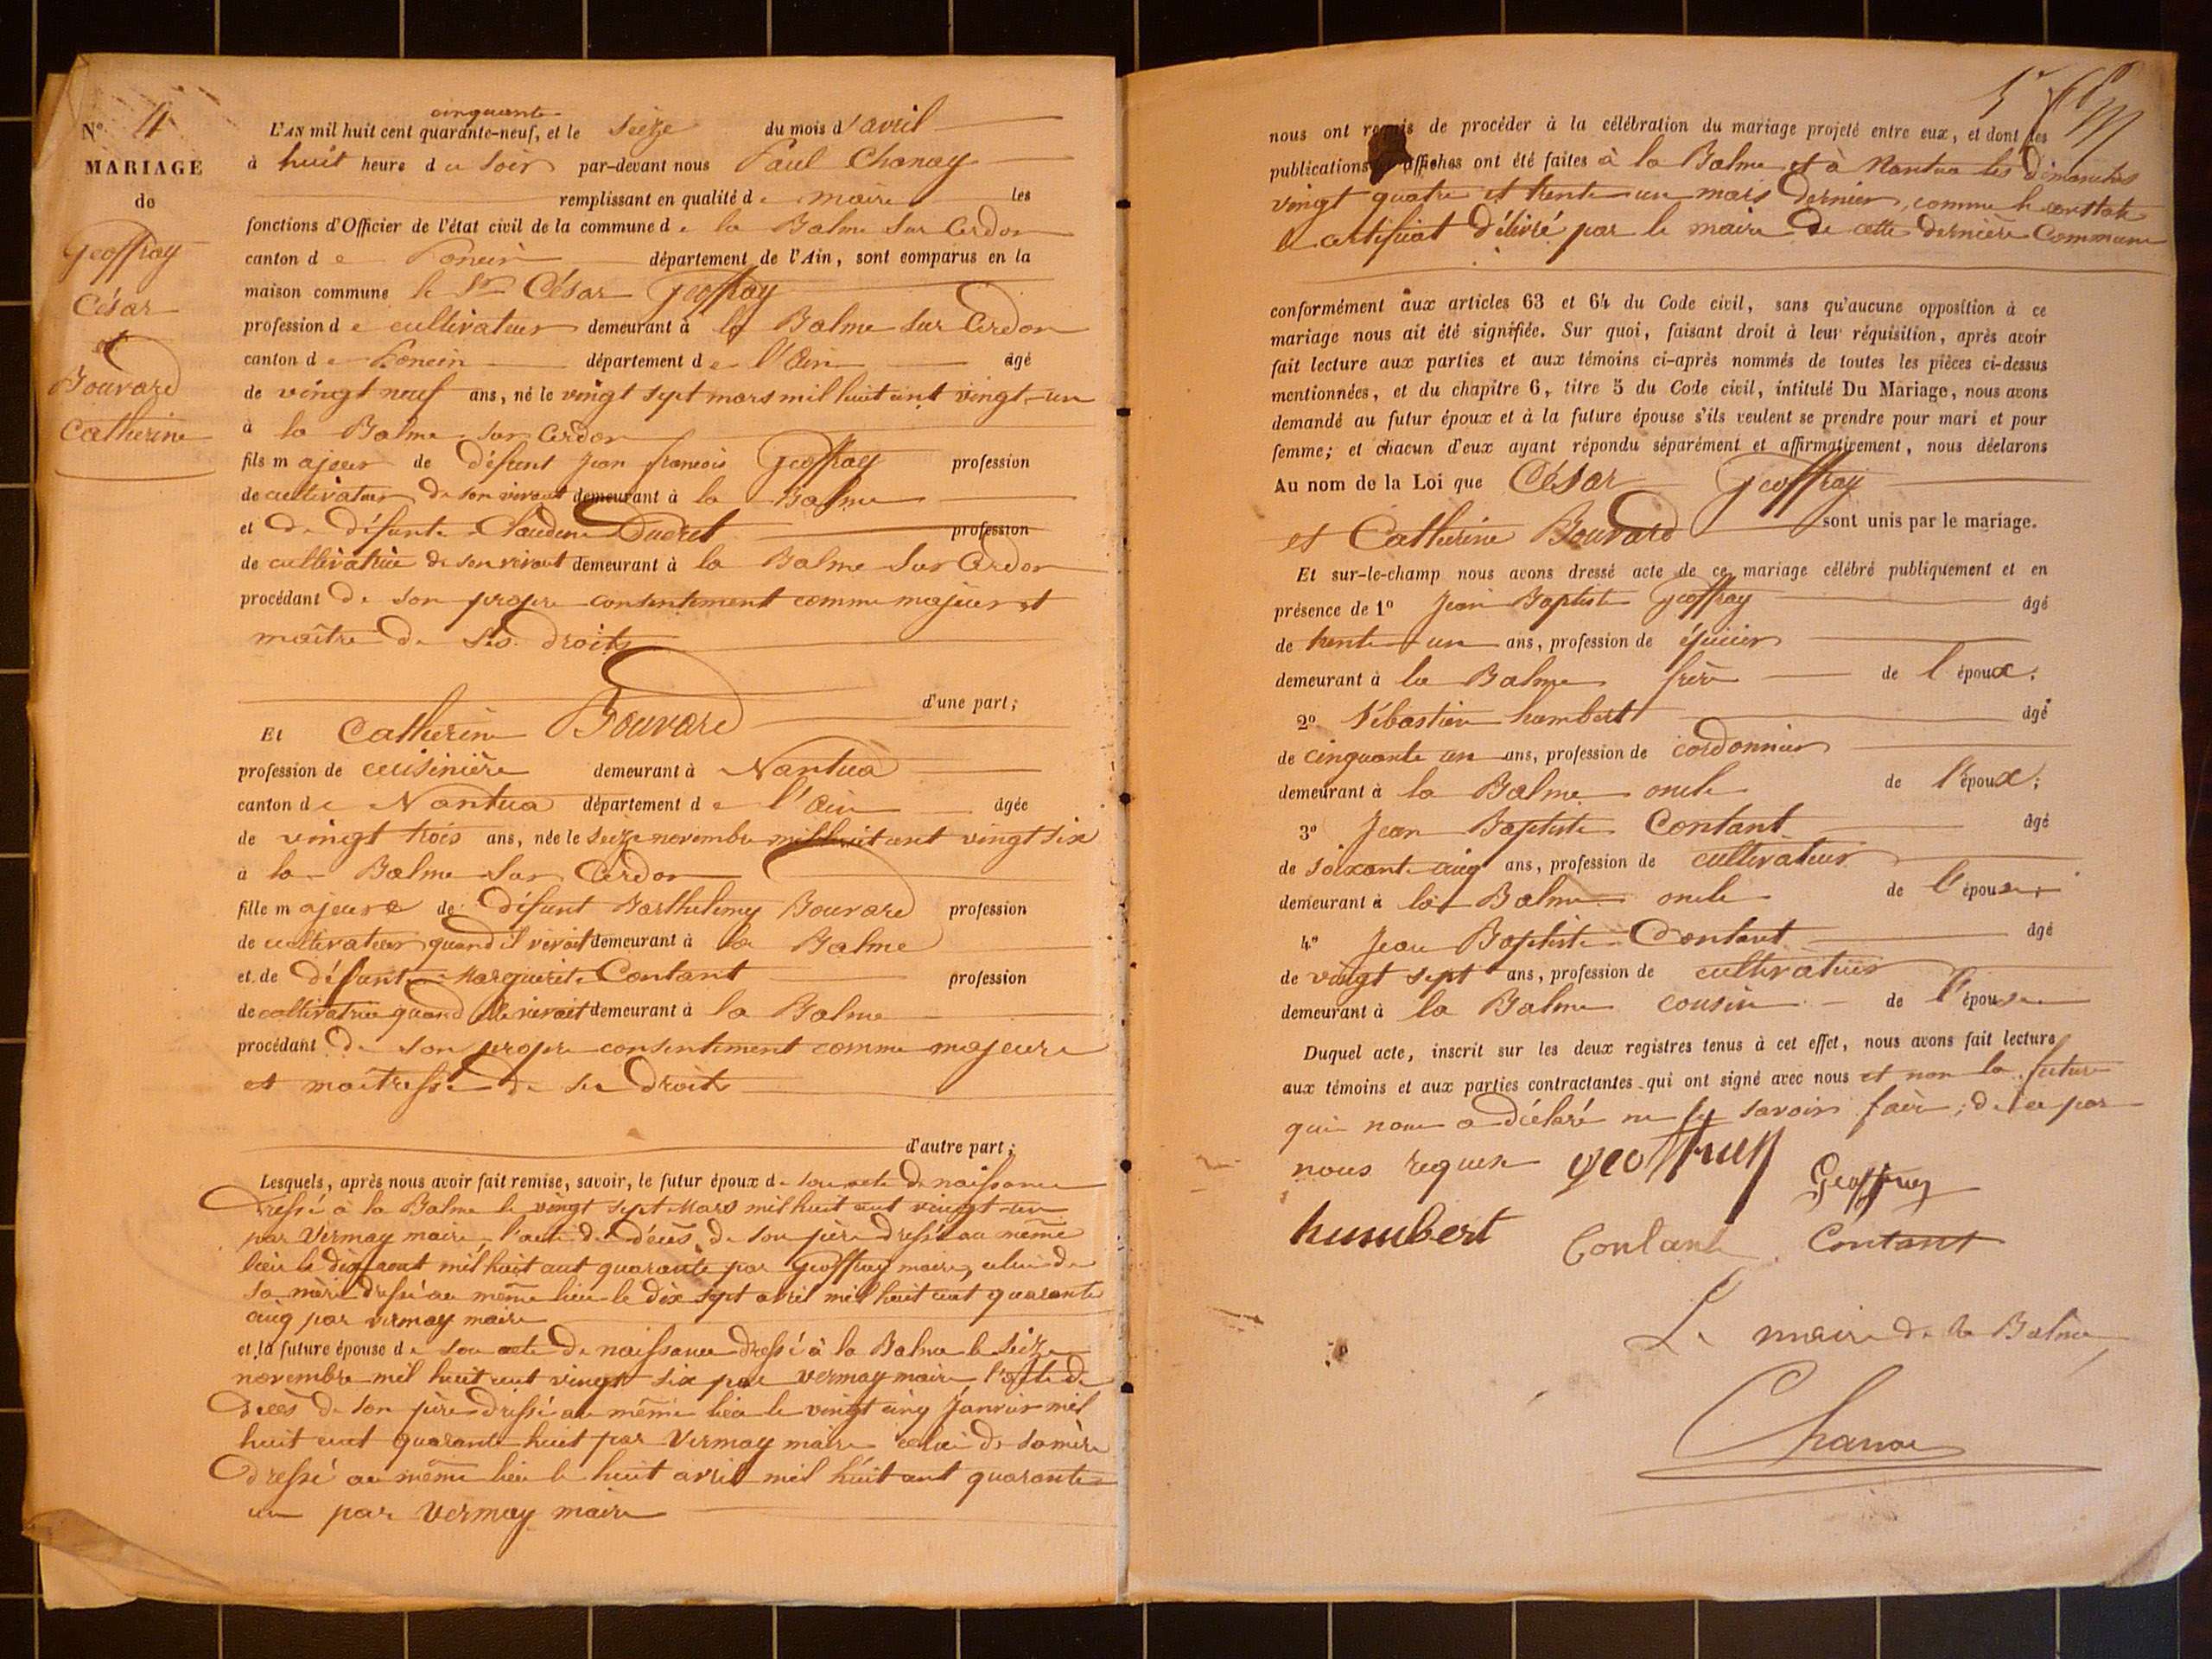 N° 4
MARIAGE
de
Geoffray
César
et
Bouvard
Catherine
cinquante
L'AN mil huit cent quarante-neuf, et le seize du mois d'avril
à huit heure du soir par-devant nous Paul Chanay
remplissant en qualité de maire les
fonctions d'Officier de l'état civil de la commune de la Balme sur Cerdon
canton de Poncin département de l'Ain, sont comparus en la
maison commune le Sr César Geoffray
profession de cultivateur demeurant à la Balme sur Cerdon
canton de Poncin département de l'Ain âgé
de vingt neuf ans, né le vingt sept mars mil huit cent vingt-un
à la Balme sur Cerdon
fils majeur de défunt Jean françois Geoffray profession
de cultivateur de son vivant demeurant à la Balme
et de défunte Claudine profession
de cultivatrice de son vivant demeurant à la Balme sur Cerdon
procédant de son propre consentement comme majeur et
maître de ses droits
d'une part;
Et Catherine Bouvard
profession de cuisinière demeurant à Nantua
canton de Nantua département de l'Ain âgée
de vingt trois ans, née le seize novembre mil huit cent vingt six
à la Balme sur Cerdon
fille majeure de défunt Barthelemy Bouvard profession
de cultivateur quand il vivait demeurant à la Balme
et de défunte Marguerite Contant profession
de cultivatrice quand elle vivait demeurant à la Balme
procédant de son propre consentement comme majeure
et maîtresse de ses droits
d'autre part;
Lesquels, après nous avoir fait remise, savoir, le futur époux de son acte de naissance
dressé à la Balme le vingt sept mars mil huit cent vingt-un
par Vermay maire, l'acte de décès de son père dressé au même
lieu le dix aout mil huit cent quarante par Geoffray maire, celui de
sa mère dressé au même lieu le dix sept avril mil huit cent quarante
cinq par vermay maire
et la future épouse de son acte de naissance dressé à la Balme le seize
novembre mil huit cent vingt six par vermay maire, l'acte de
décès de son père dressé au même lieu le vingt cinq Janvier mil
huit cent quarante huit par Vermay maire celui de sa mère
dressé au même lieu le huit avril mil huit cent quarante
un par Vermay maire
nous ont requis de procéder à la célébration du mariage projeté entre eux, et dont les
publications et affiches ont été faites à la Balme et à Nantua les dimanches
vingt quatre et trente un mars dernier, comme le constate
le certificat délivré par le maire de cette dernière Commune
conformément aux articles 63 et 64 du Code civil, sans qu'aucune opposition à ce
mariage nous ait été signifiée. Sur quoi, faisant droit à leur réquisition, après avoir
fait lecture aux parties et aux témoins ci-après nommés de toutes les pièces ci-dessus
mentionnées, et du chapitre 6, titre 5 du Code civil, intitulé Du Mariage, nous avons
demandé au futur époux et à la future épouse s'ils veulent se prendre pour mari et pour
femme; et chacun d'eux ayant répondu séparément et affirmativement, nous déclarons
Au nom de la Loi que César Geoffray
et Catherine Bouvard sont unis par le mariage.
Et sur-le-champ nous avons dressé acte de ce mariage célébré publiquement et en
présence de 1° Jean Baptiste Geoffray âgé
de trente-un ans, profession de épicier
demeurant à la Balme frère de l'époux;
2° Sébastien humbert âgé
de cinquante un ans, profession de cordonnier
demeurant à la Balme oncle de l'époux;
3° Jean Baptiste Contant âgé
de soixante cinq ans, profession de cultivateur
demeurant à la Balme oncle de l'épouse
4° Jean Baptiste Contant âgé
de vingt sept ans, profession de cultivateur
demeurant à la Balme cousin de l'épouse
Duquel acte, inscrit sur les deux registres tenus à cet effet, nous avons fait lecture
aux témoins et aux parties contractantes qui ont signé avec nous et non la future
qui nous a déclaré ne le savoir faire; de ce par
nous requise geoffray Geoffray
humbert Contant Contant
Le maire de la Balme
Chanay